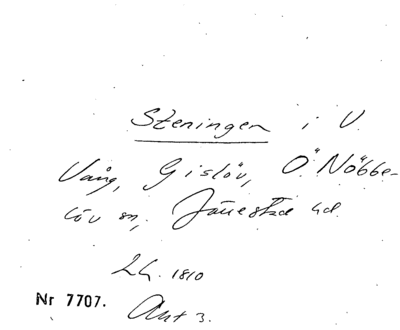 Steningen i V.
Vång, Gislöv, Ö. Nöbbe-
löv sn, Järrestad hd.
LH. 1810
Nr 7707. Akt 3.